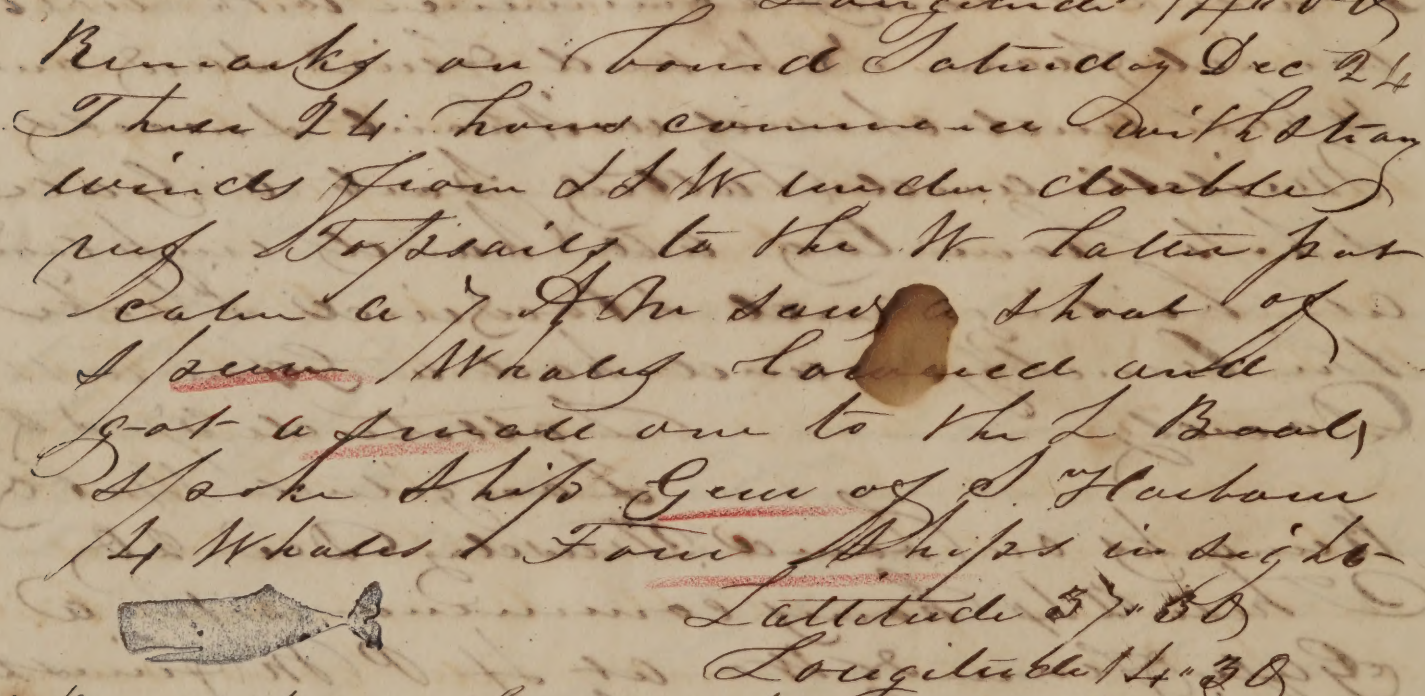 Longitude 14"00
Remarks on board Saturday Dec 24
These 24 hours commence with strong
winds from SSW under double
reef Topsails to the W latter part
calm a 7 A M saw a shoal of
Sperm Whales lowered and
got a small one to the L Boat,
Spoke Ship Gem of S Harbour
4 Whales & Four Ships in sight
Lattitude 37.30
Longitude 14"30